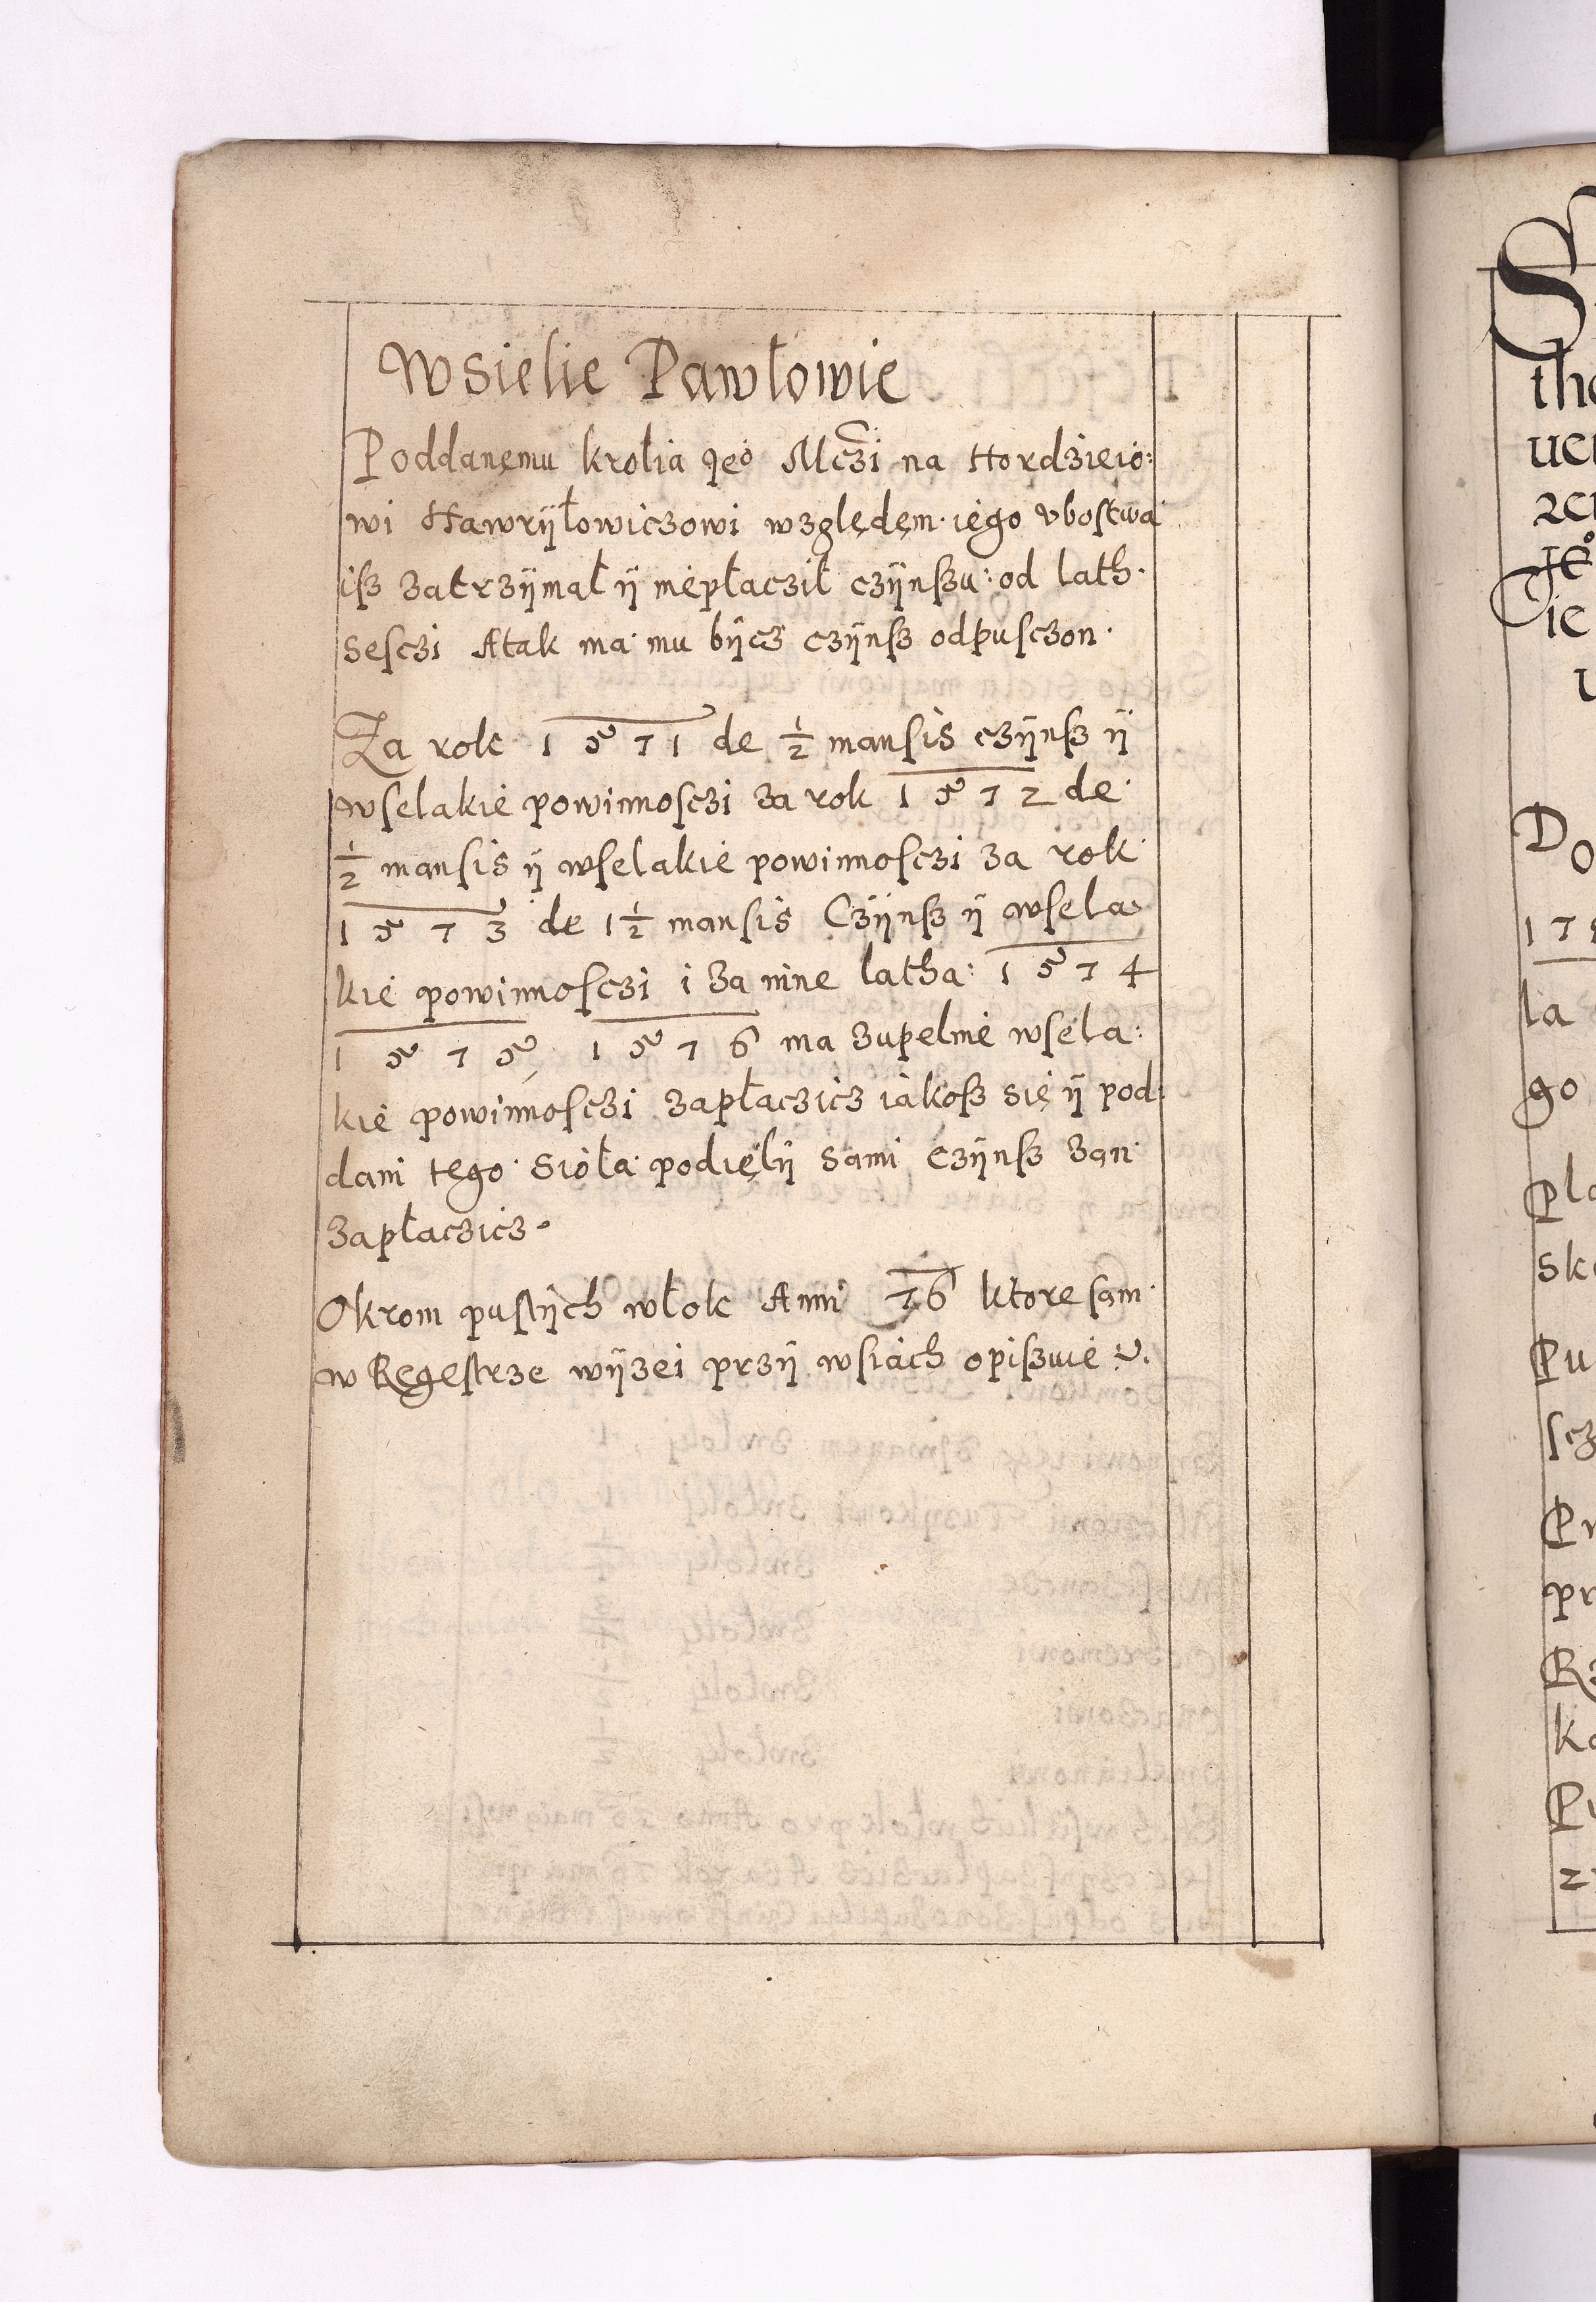 Wsielie Pawłowie
Poddanęmu krolia Jeo Mczi na Hordzieio:
wi Hawrÿłowiczowi względęm iego vbostwa
isz zatrzÿmał ÿ niepłacził czÿnszu: od lath
sesczi Atak ma mu bÿcz czÿnsz odpusczon
Za rok 1571 de ½ mansis czÿnsz ÿ
wselakie powinnosczi za rok 1572 de
½ mansis ÿ wselakie powinnosczi za rok
1573 de 1½ mansis Czÿnsz ÿ wsela
kie powinnosczi i za nine latha: 1574
1575, 1576 ma zupelnie wsela:
kie powinnosczi zapłaczicz iakosz się ÿ pod
dani tego sioła podięlÿ sami czÿnsz zan
zapłaczicz.
Okrom pustÿch włok Anni 76 ktore sam
w Regestrze wÿzei przÿ wsiach opiszuie
D
la
go